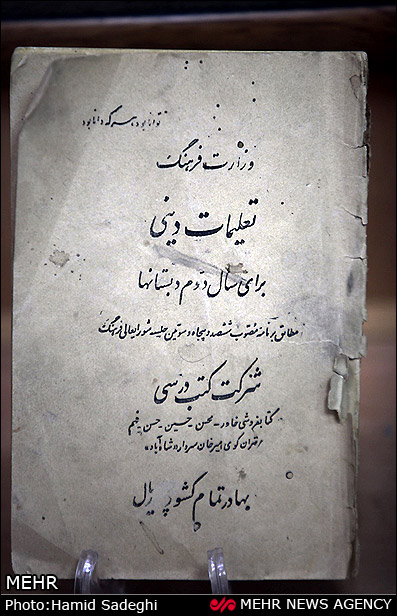 توانا بود هر که دانا بود
وزارت فرهنگ
تعلیمات دینی
برای سال دوم دبستانها
مطابق برنامه مصوب ششصد و پنجاه و سومین جلسه شورایعالی فرهنگ
شرکت کتب درسی
کتابفروشی خاور - محسن - حسین - حسن - فهم
تهران کوی میرخان سردار «شاه آباد»
بها در تمام کشور ریال
MEHR
Photo:Hamid Sadeghi
MEHR NEWS AGENCY